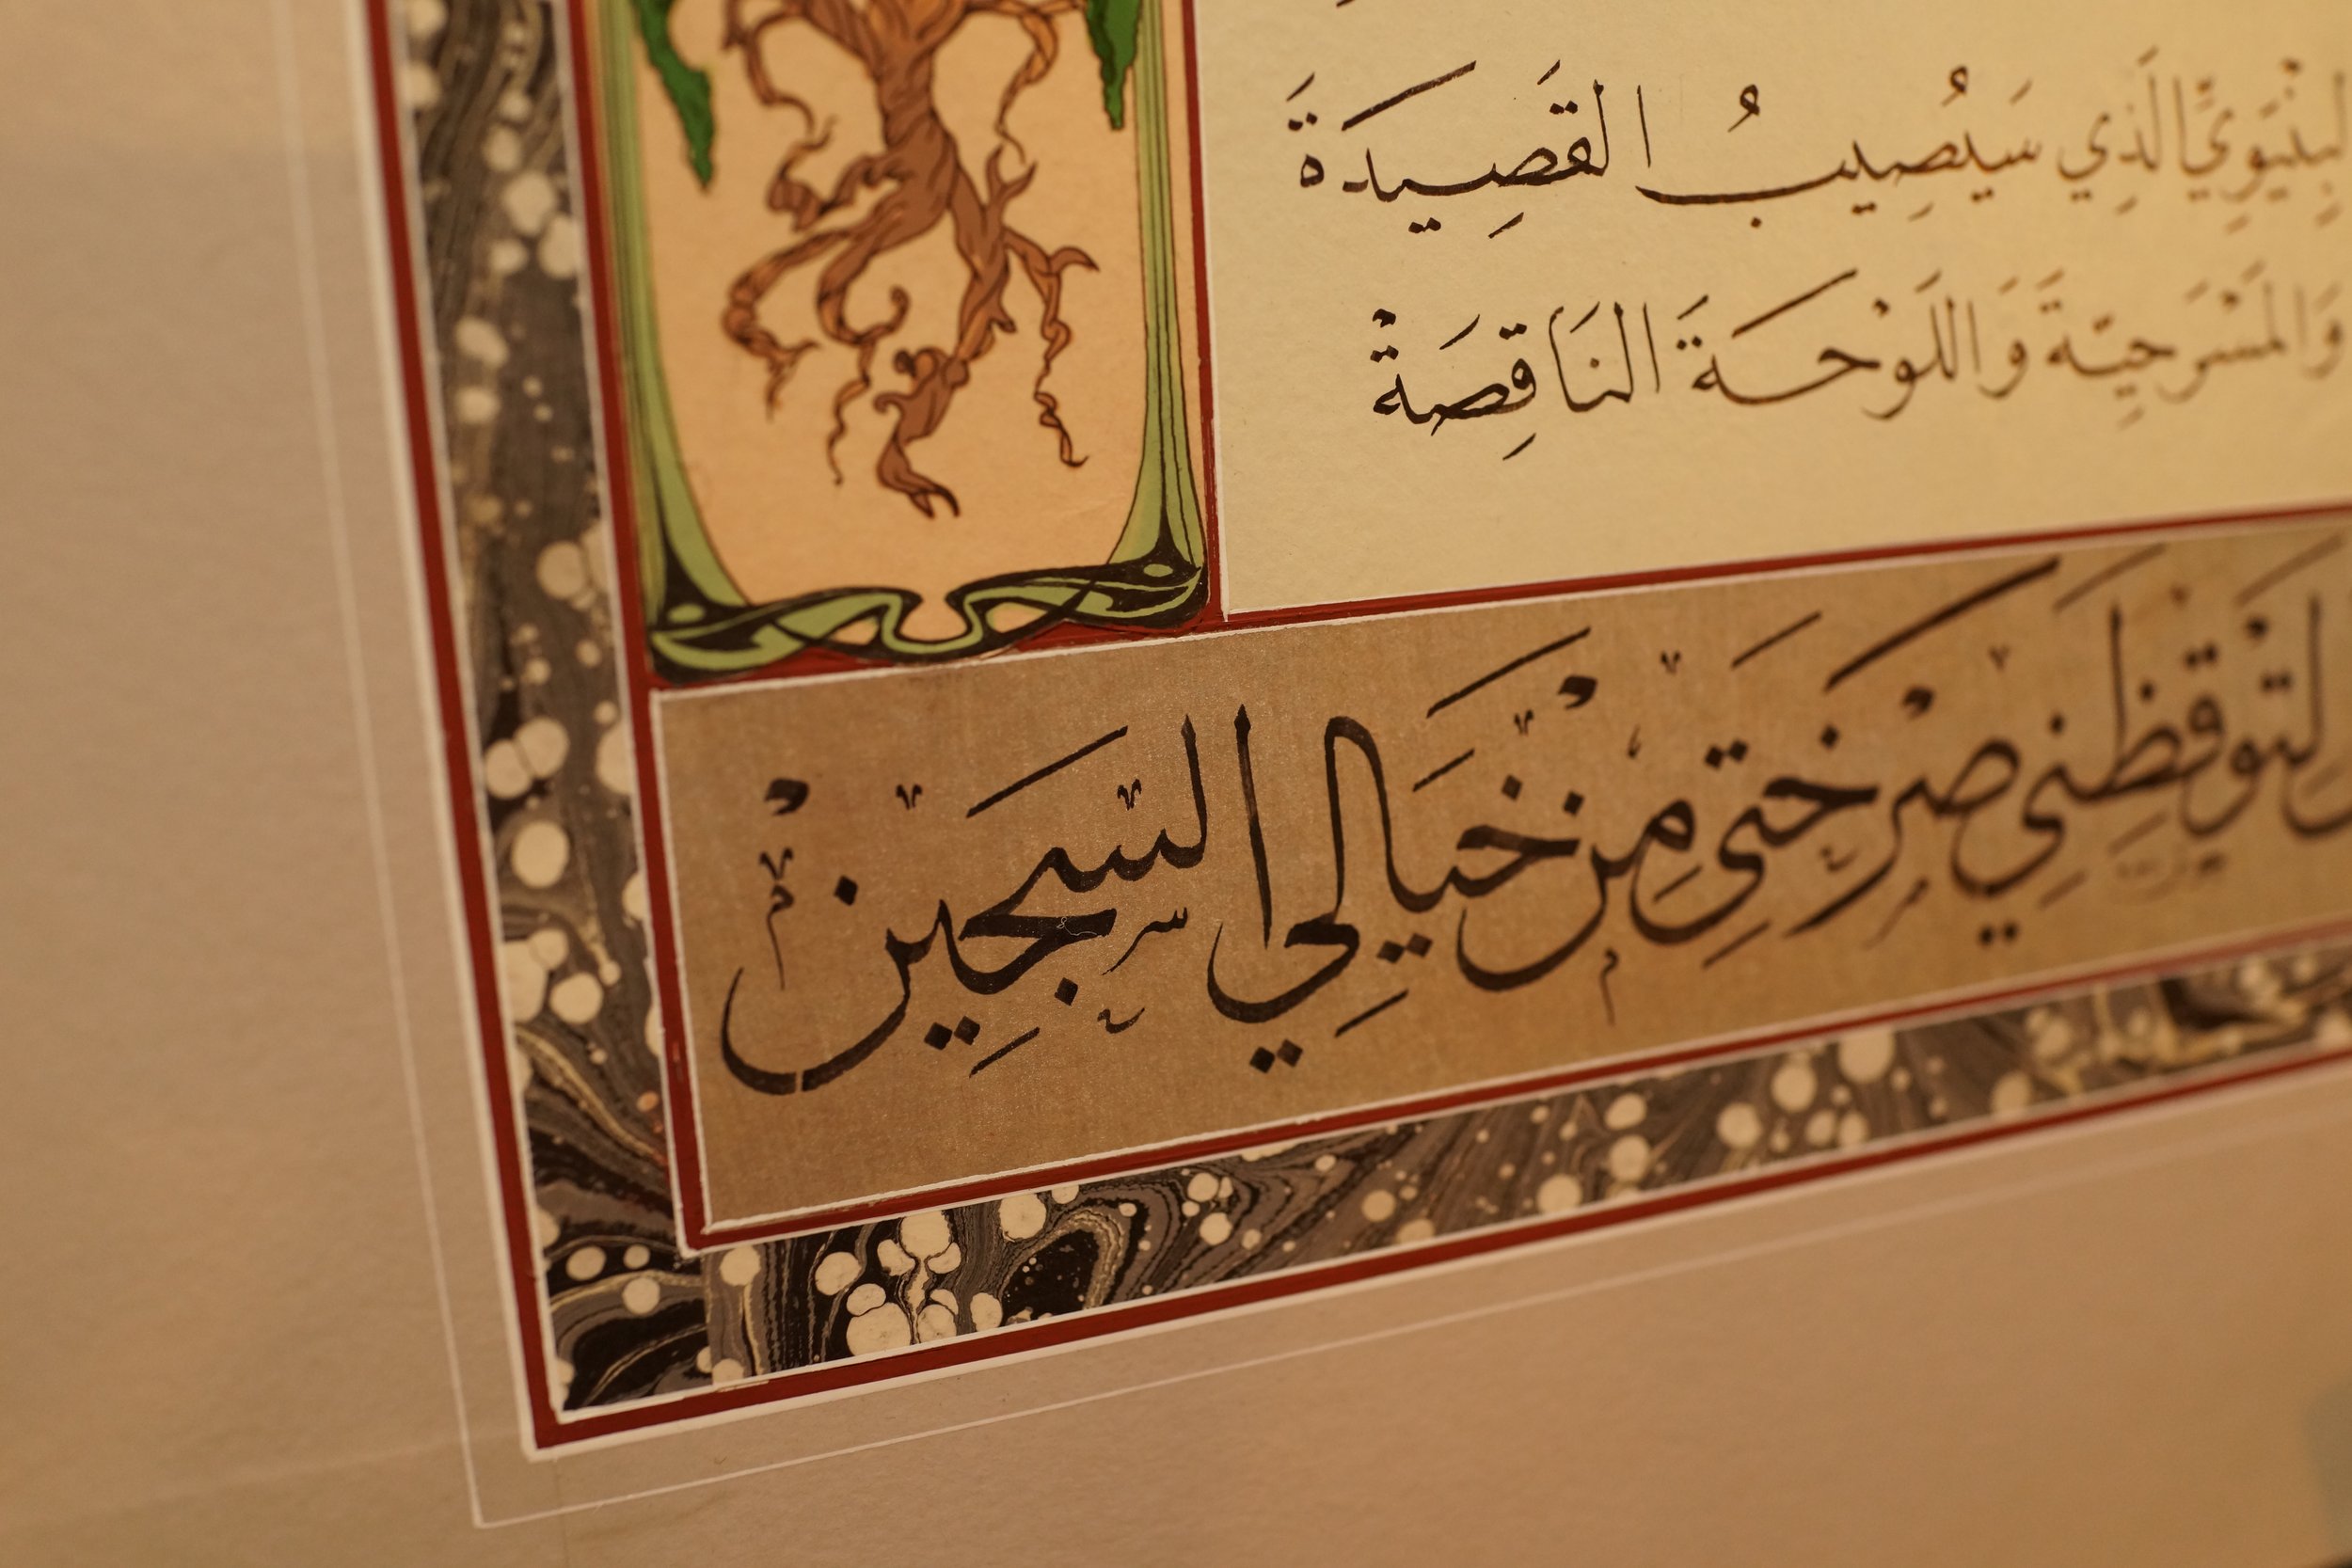 البِنْيَوِيَّ الَّذِي سَيُصِيبُ القَصِيدَةَ
وَالمَسْرَحِيَّةَ وَاللَوْحَةَ النَاقِصَةْ
لِتُوقِظَنِي صَرْخَتِي مِنْ خَيَالِي السَجِينْ